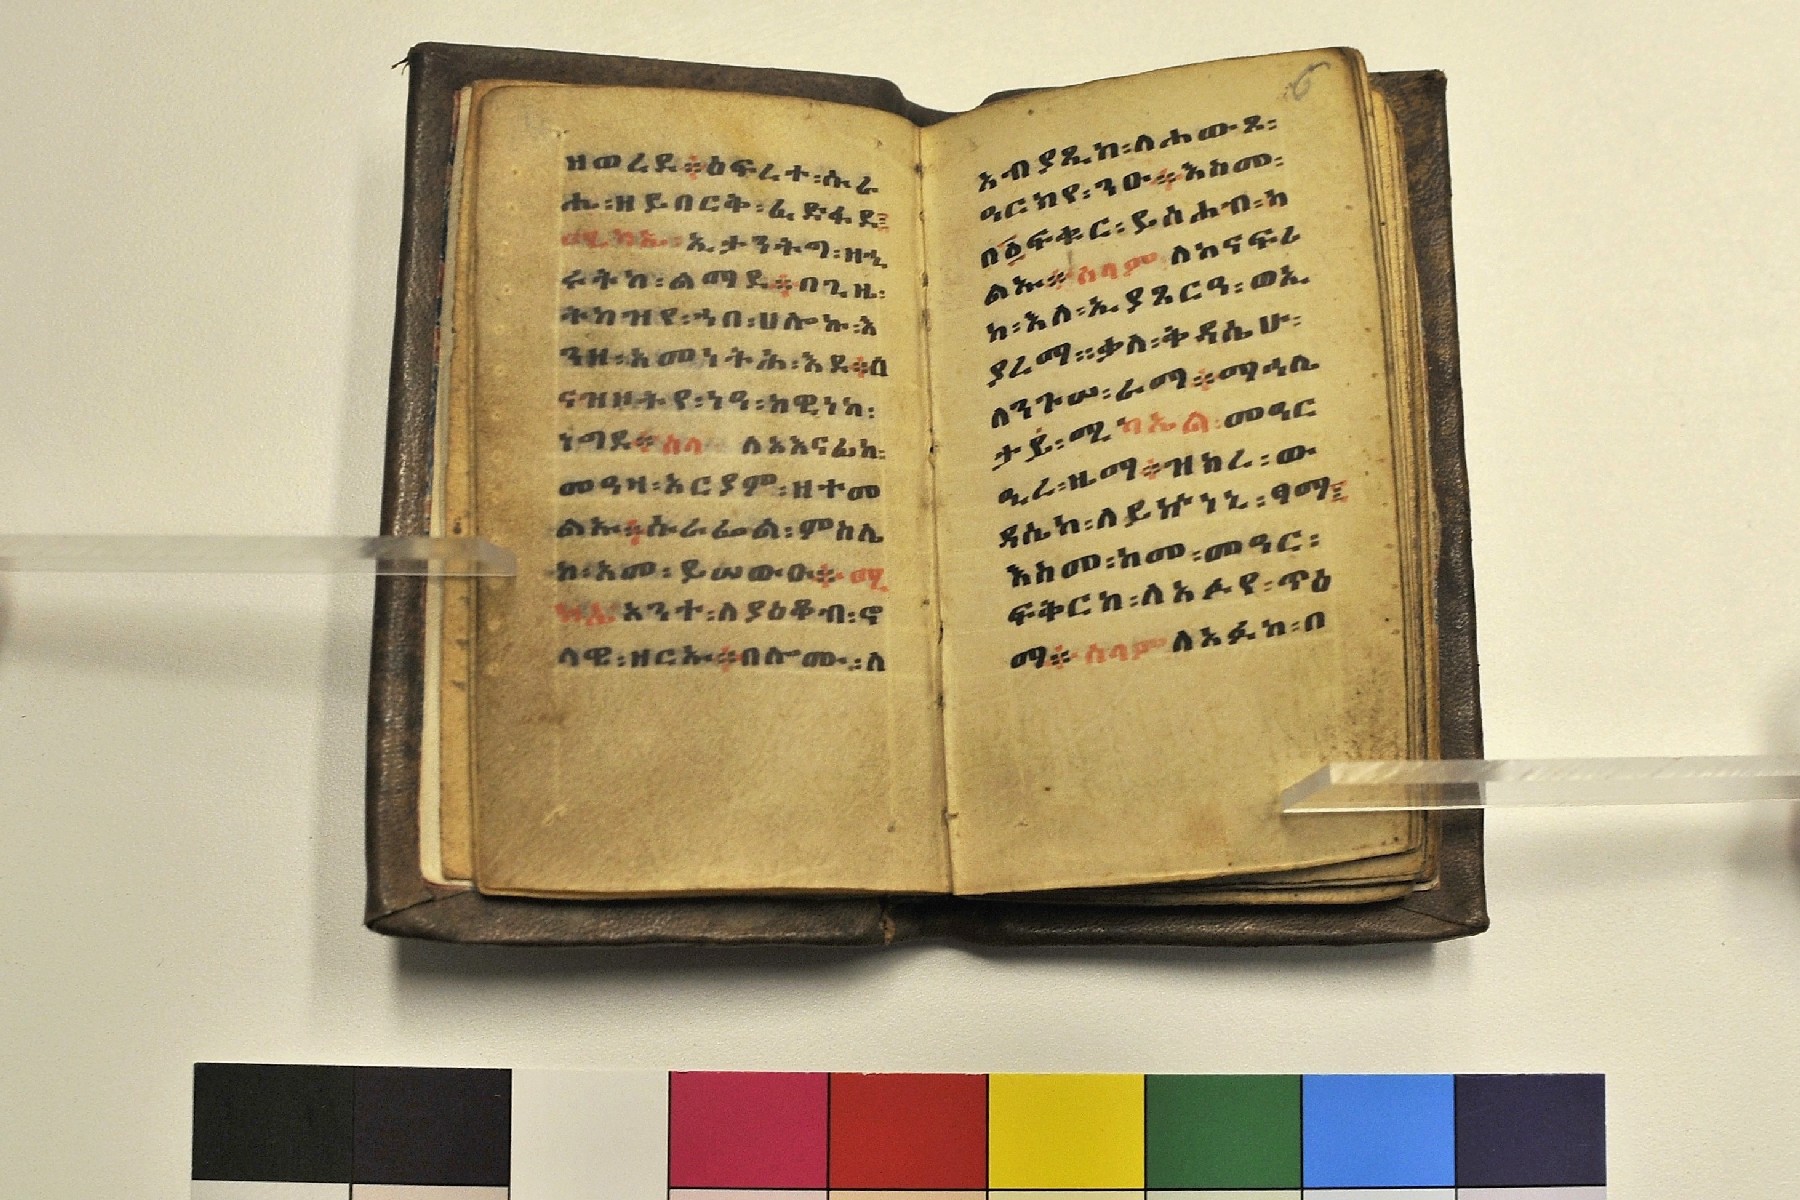 ዘወረደ፨ዕፍረተ፡ሱራ
ሑ፡ዘይበርቅ፡ፈድፋደ፤
ሚካኤ፡ኢታንትግ፡ዘኂ
ሩትከ፡ልማደ፨በጊዜ፡
ትከዝየ፡ኀበ፡ሀሎኩ፡እ
ንዘ፡አመነትሕ፡እደ፨ሰ
ናዝዞትየ፡ነዓ፡ከዊነከ፡
ነግደ፨ሰላ ለአእናፊከ፡
መዓዛ፡አርያም፡ዘተመ
ልኡ፨ሱራፌል፡ምስሌ
ከ፡አመ፡ይሠውዑ፨ሚ
ካኤ አንተ፡ለያዕቆብ፡ኖ
ላዊ፡ዘርኡ፨በሎሙ፡ለ
አብያጺከ፡ለሐውጾ፡
ዓርከየ፡ንዑ፨እስመ፡
በዕፍቁር፡ይስሐብ፡ካ
ልኡ፨ሰላም ለከናፍሪ
ከ፡እለ፡ኢያጸርዓ፡ወኢ
ያረማ፡፡ቃለ፡ቅዳሴሁ፡
ለንጉሠ፡ራማ፨ማኅሌ
ታይ፡ሚካኤል፡መዓር
ዒረ፡ዜማ፨ዝክረ፡ው
ዳሴከ፡ለይኵነኒ፡ፃማ፤
እስመ፡ከመ፡መዓር፡
ፍቅርከ፡ለአፉየ፡ጥዕ
ማ፨ሰላም ለአፉከ፡በ
6